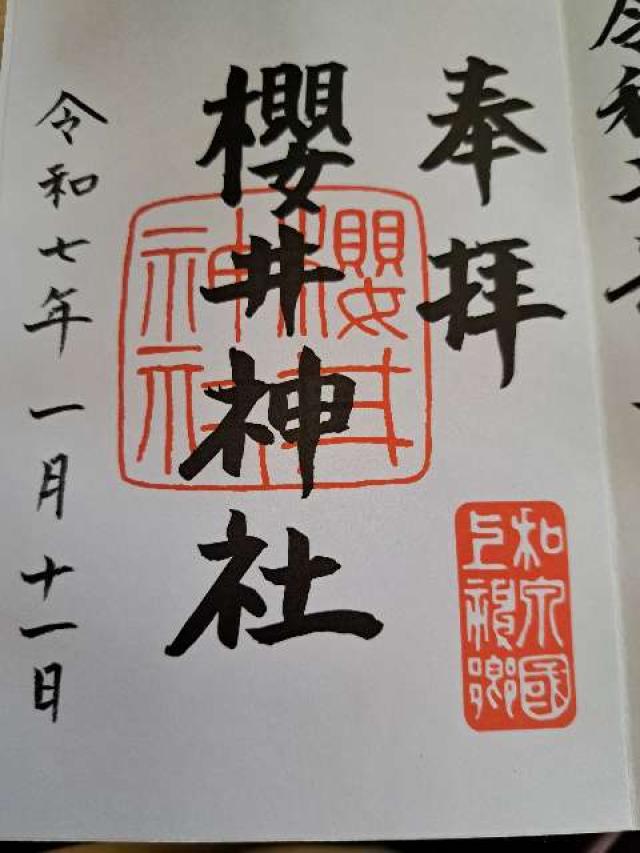 奉拝
和泉國
上神郷
櫻井神社
櫻井
神社
令和七年一月十一日